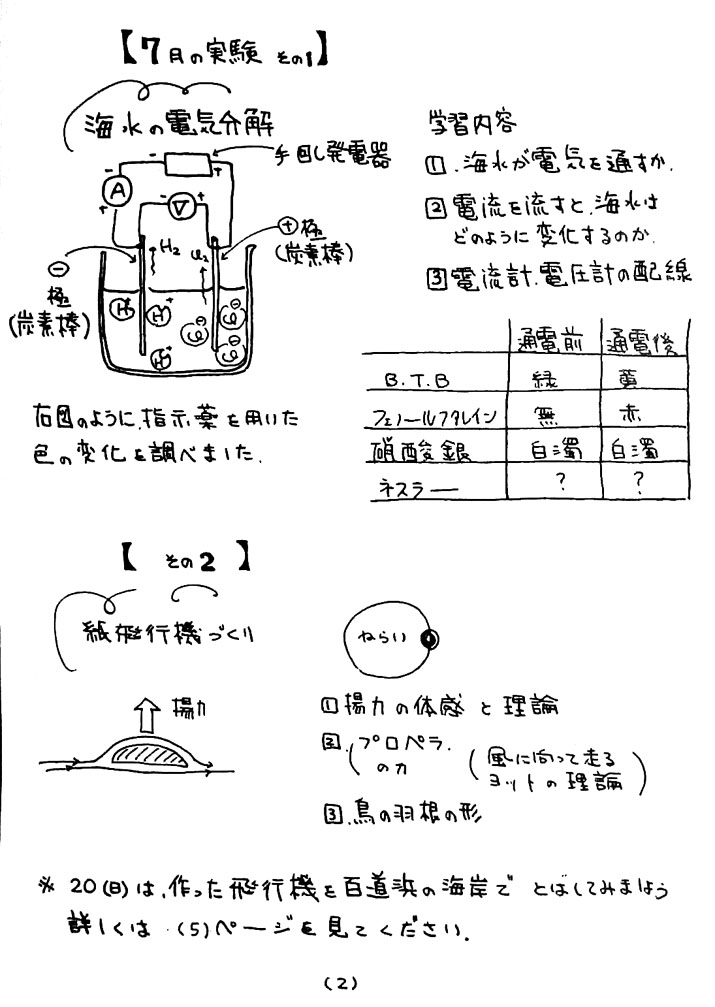 【7月の実験 その1】
海水の電気分解
手回し発電器
- +
A
- +
- V +
⊕極
(炭素棒)
⊖
極
(炭素棒)
H₂
Cl₂
H⁺ H⁺ H⁺
Cl⊖ Cl⊖ Cl⊖
学習内容
1.海水が電気を通すか.
2 電流を流すと、海水は
どのように変化するのか.
3 電流計、電圧計の配線
通電前 通電後
B.T.B 緑 黄
フェノールフタレイン 無 赤
硝酸銀 白濁 白濁
ネスラー ? ?
右図のように、指示薬を用いた
色の変化を調べました.
【 その2 】
紙飛行機づくり
揚力
ねらい
1 揚力の体感と理論
2.(プロペラ.
の力
(風に向って走る
ヨットの理論)
3.鳥の羽根の形
※ 20(日)は、作った飛行機を百道浜の海岸で とばしてみましょう
詳しくは (5)ページを見てください.
(2)